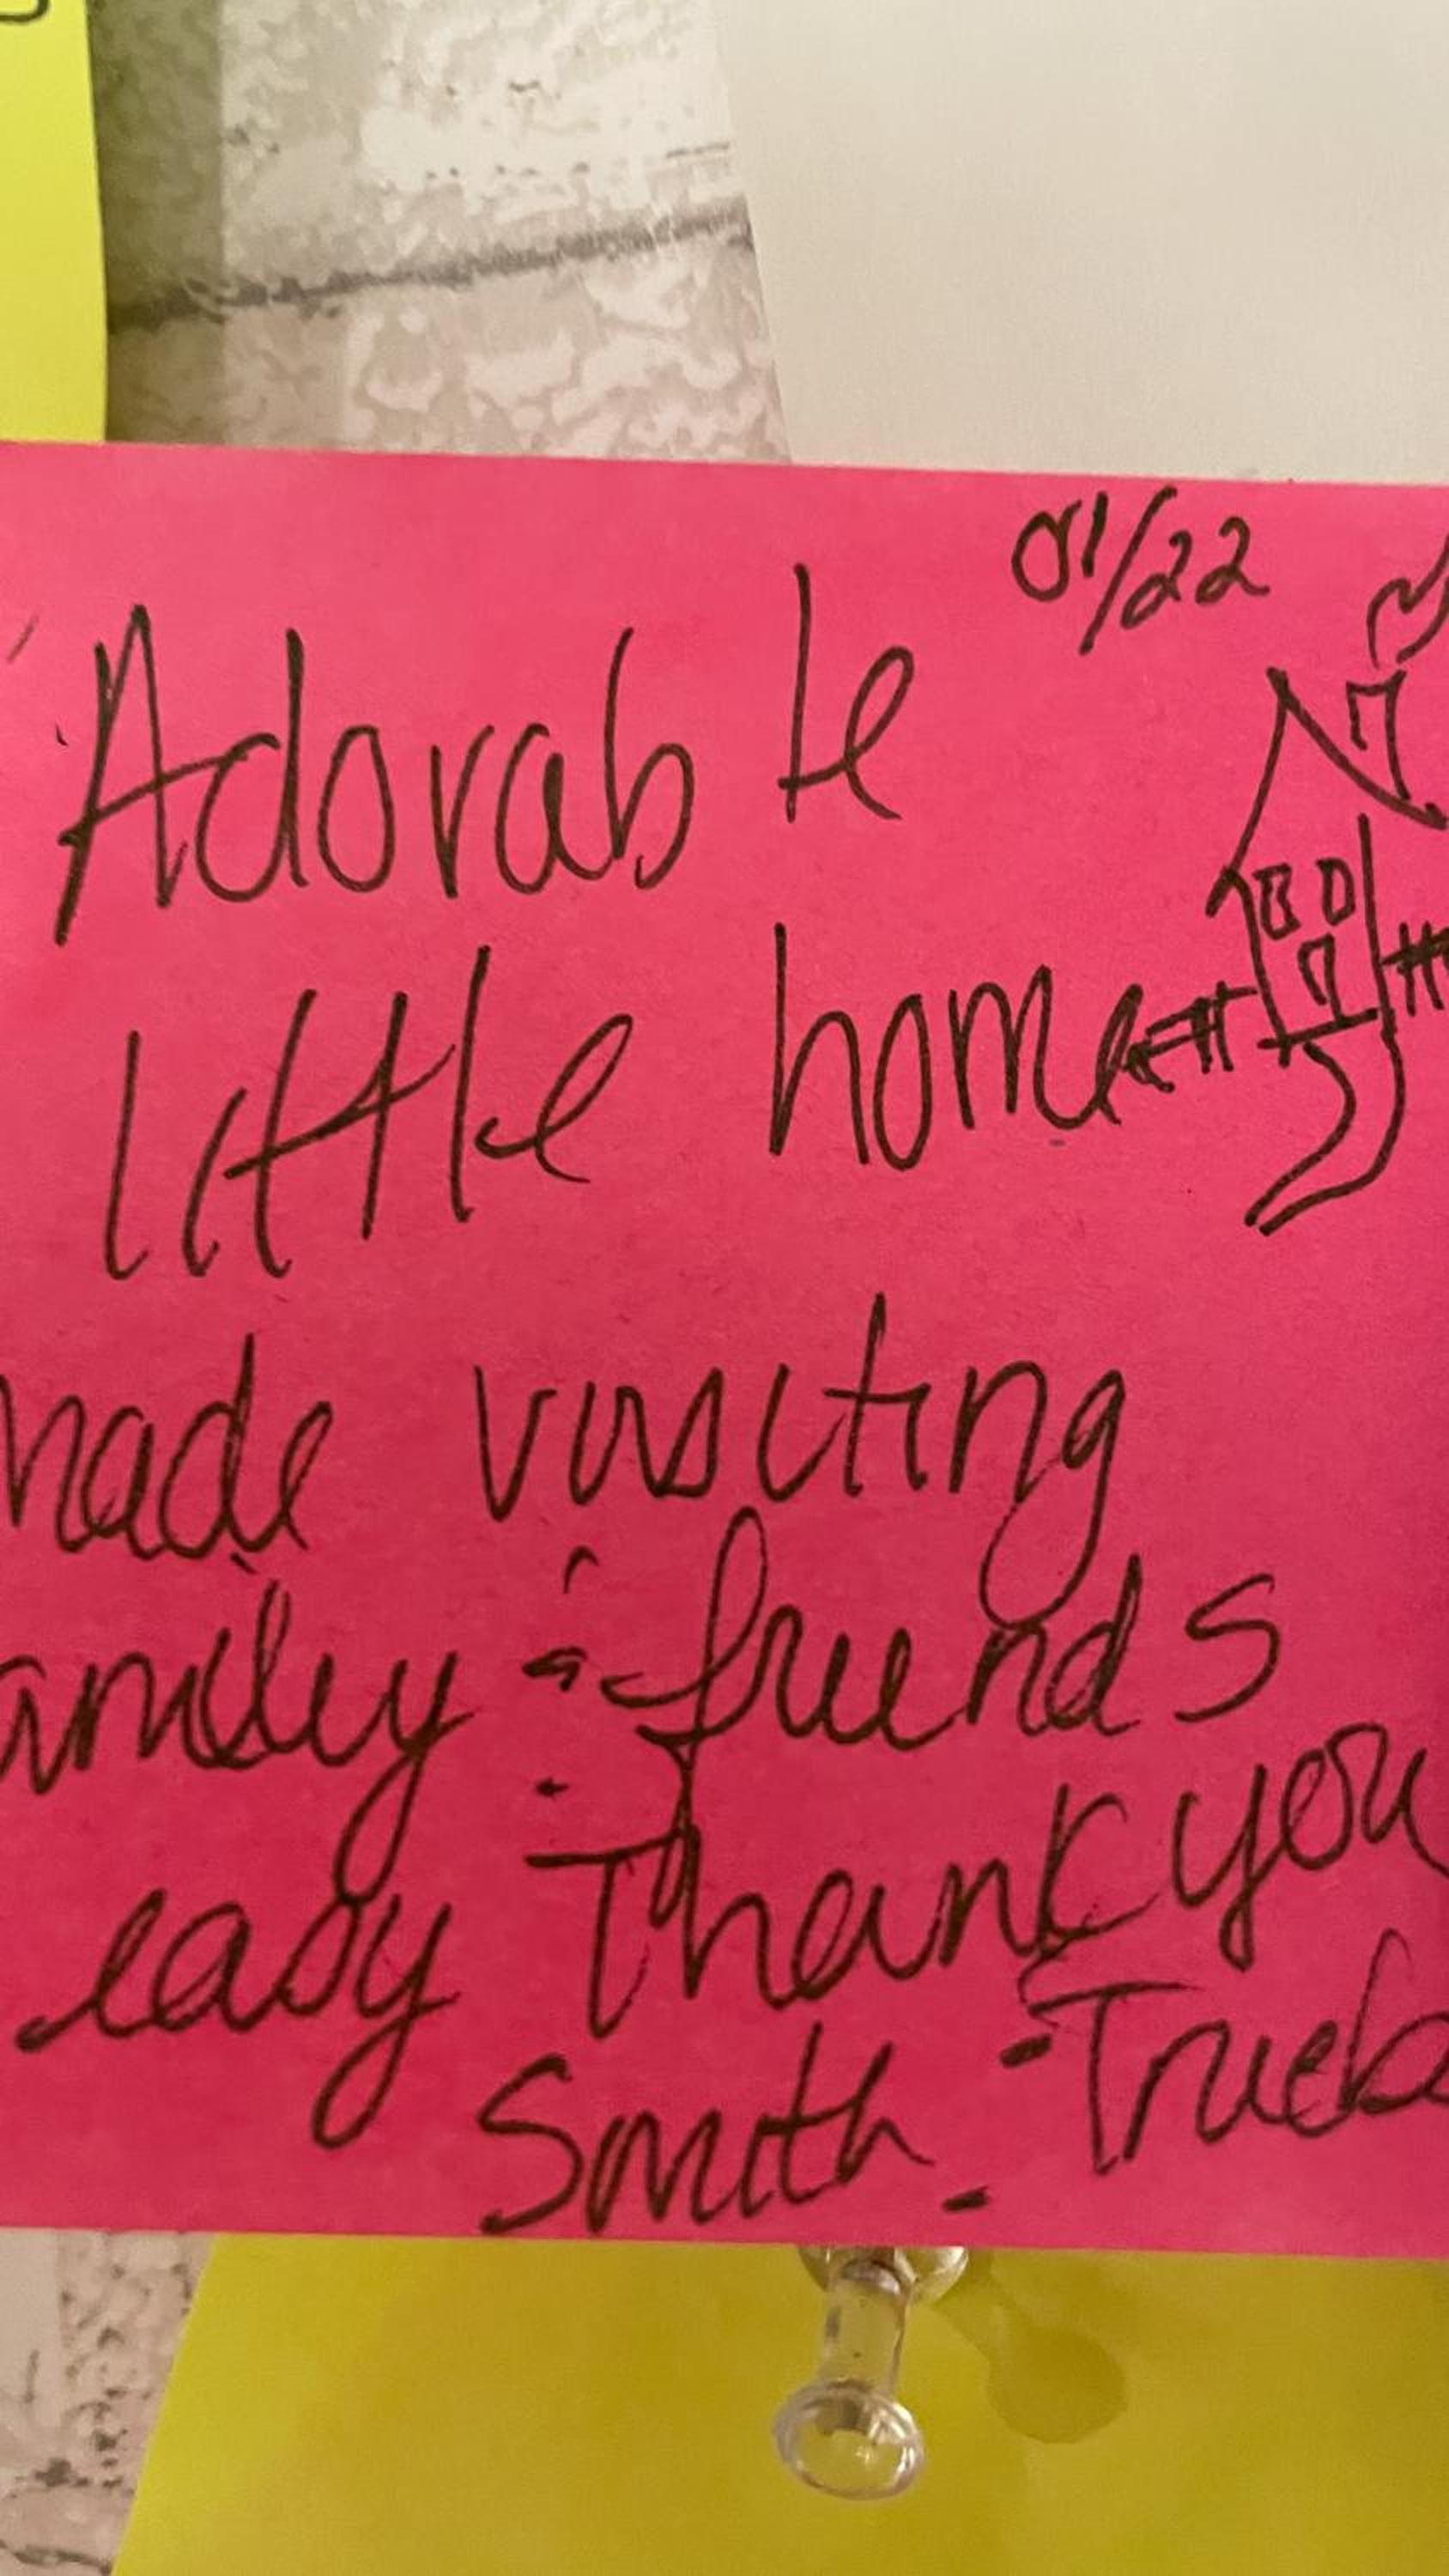 01/22
Adorable
little home
made visiting
amily & friends
easy Thank you
Smith -